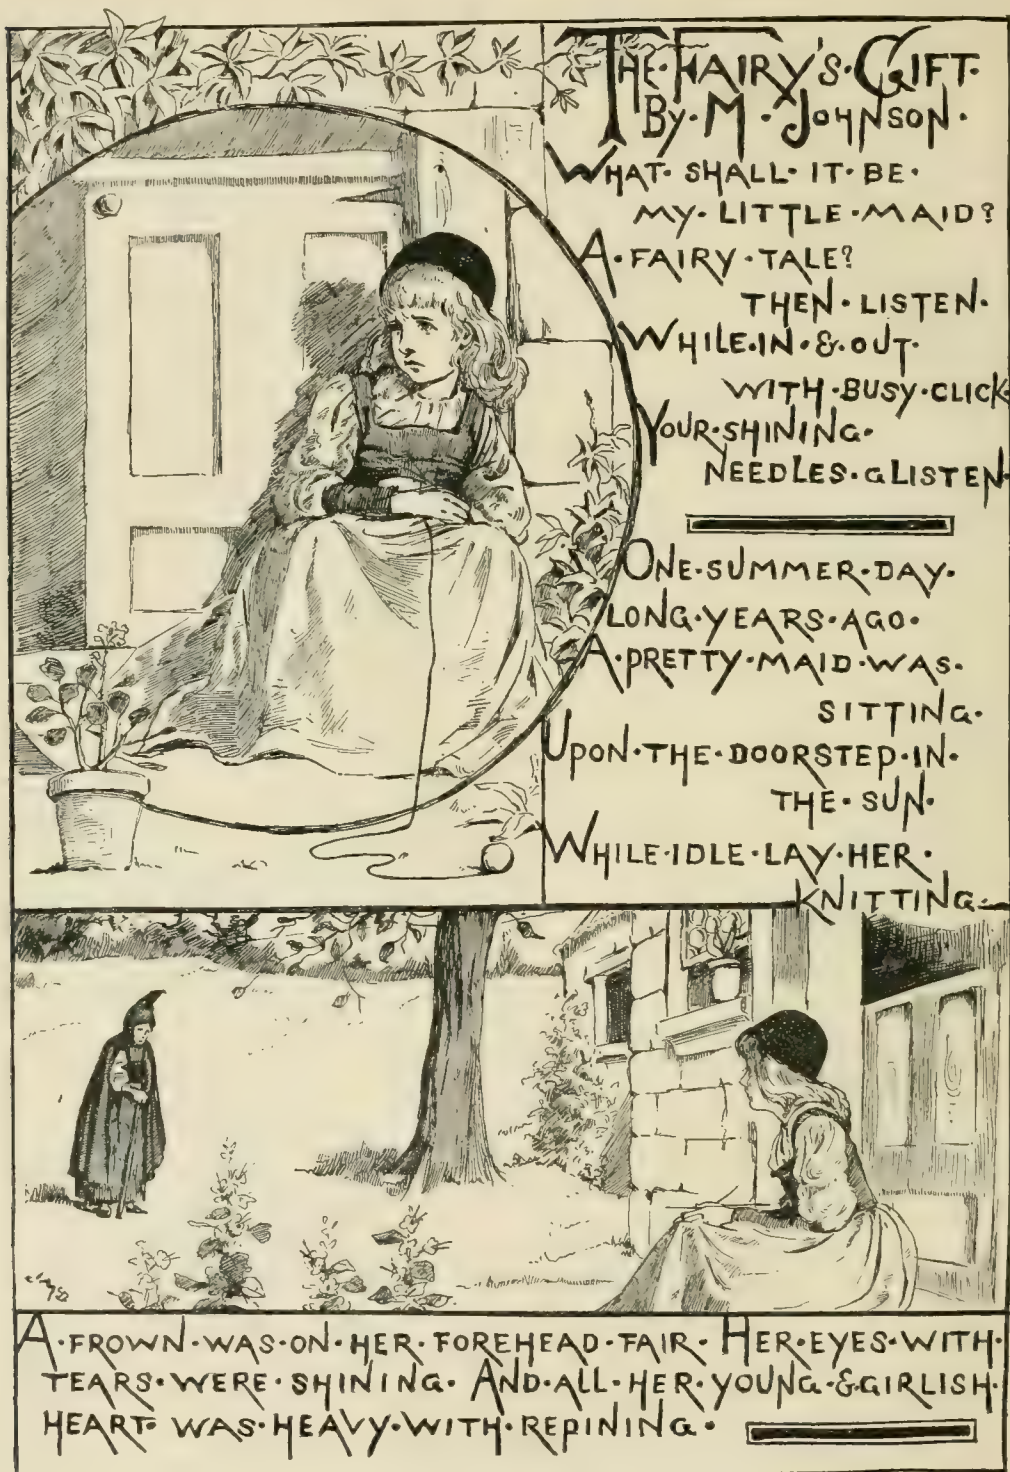 THE·FAIRY'S·GIFT·
By·M·JOHNSON·
WHAT·SHALL·IT·BE·
MY·LITTLE·MAID?
A·FAIRY·TALE?
THEN·LISTEN·
WHILE·IN·&·OUT·
WITH·BUSY·CLICK·
YOUR·SHINING·
NEEDLES·GLISTEN·
ONE·SUMMER·DAY·
LONG·YEARS·AGO·
A·PRETTY·MAID·WAS·
SITTING·
UPON·THE·DOORSTEP·IN·
THE·SUN·
WHILE·IDLE·LAY·HER·
KNITTING·
A·FROWN·WAS·ON·HER·FOREHEAD·FAIR·HER·EYES·WITH·
TEARS·WERE·SHINING·AND·ALL·HER·YOUNG·&·GIRLISH·
HEART·WAS·HEAVY·WITH·REPINING·